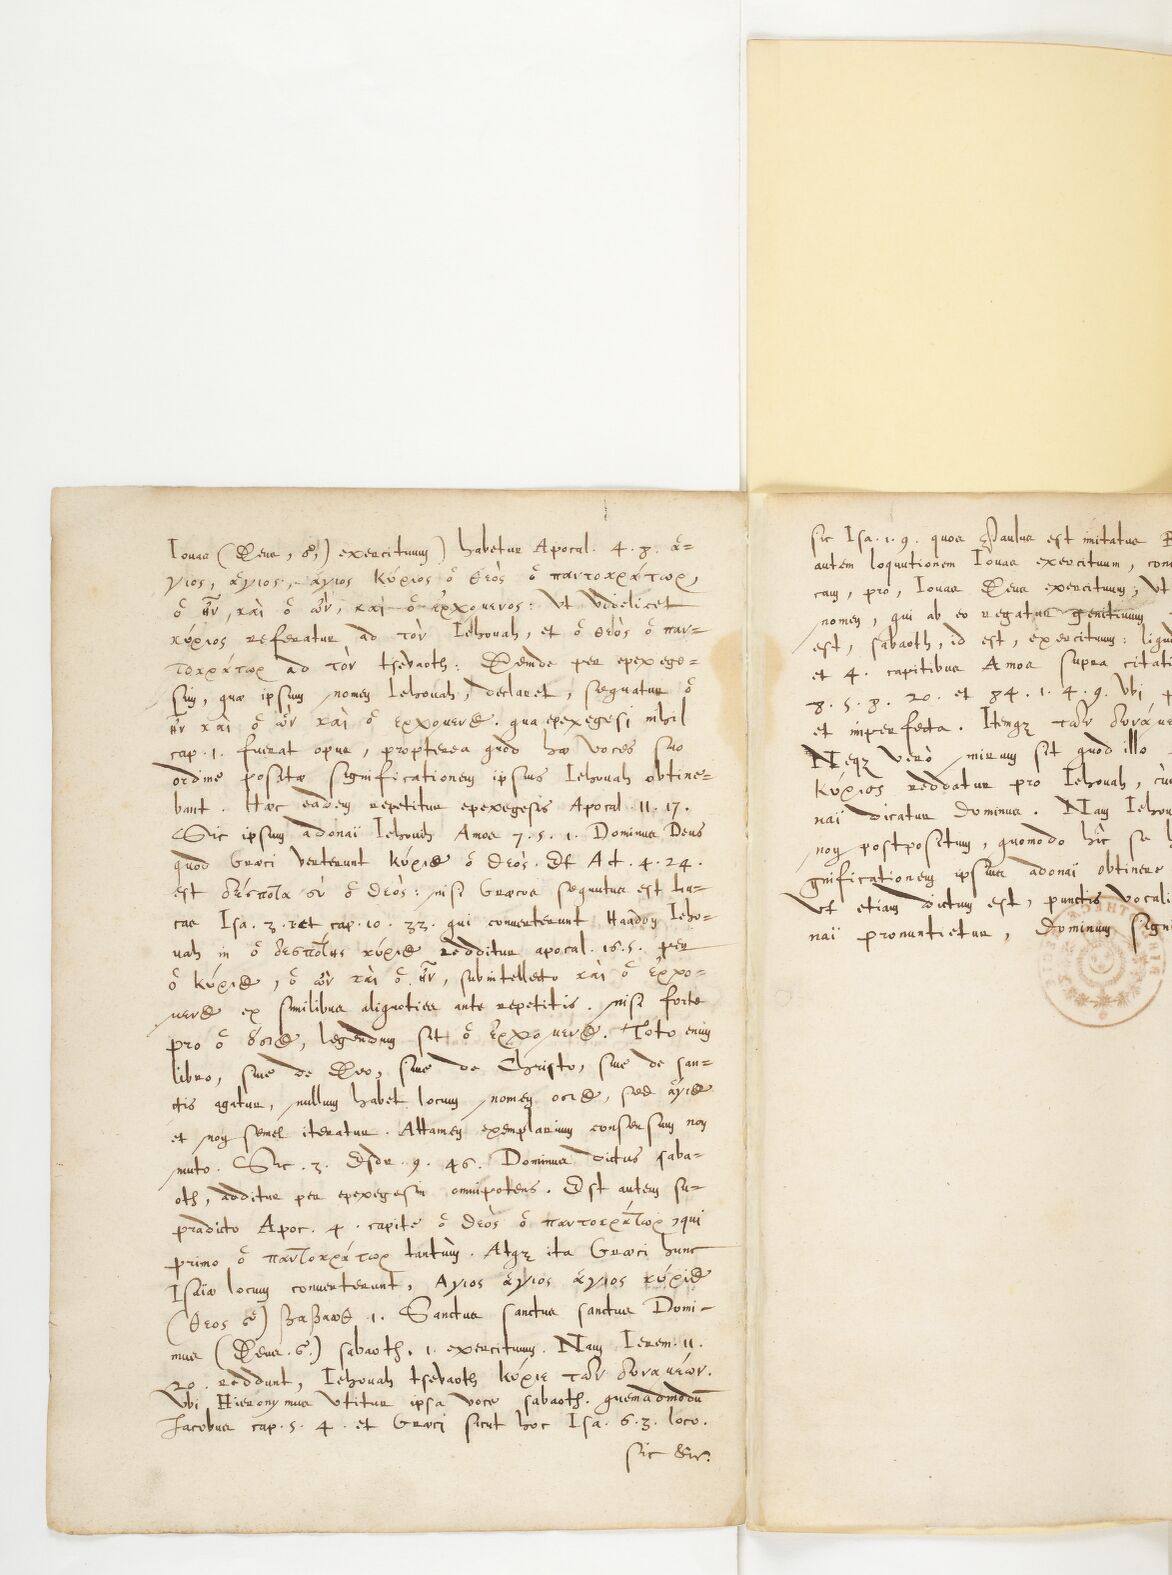 Iouae (Deus, ὁ,) exercituum) habetur Apocal. 4. 8. ἅ-
γιος, ἅγιος, ἅγιος κύριος ὁ θεὸς ὁ παντοκράτωρ,
ὁ ἦν, καὶ ὁ ὢν, καὶ ὁ ἐρχόμενος: Ut videlicet
κύριος referatur ad τὸν Iehouah, et ὁ θεὸς ὁ παν-
τοκράτωρ ad τὸν tsebaoth: Deinde per epexege-
sim, quae ipsum nomen Iehouah, declaret, sequatur ὁ
ἦν καὶ ὁ ὢν καὶ ὁ ἐρχόμενος. qua epexegesi nihil
cap. 1. fuerat opus, propterea quod hae voces suo
ordine positae significationem ipsius Iehouah obtine-
bant. Haec eadem repetitur epexegesis Apocal. 11. 17.
Sic ipsum adonaï Iehouih Amos 7. 5. 1. Dominus Deus
quod Graeci verterunt κύριος ὁ θεὸς. Et Act. 4. 24.
est δέσποτα σὺ ὁ θεὸς: nisi Graecos sequutus est Lu-
cas Isa. 3. 1. et cap. 10. 33. qui converterunt Haadon Ieho-
uah in ὁ δεσπότης κύριος redditur apocal. 16. 5. per
ὁ κύριος, ὁ ὢν καὶ ὁ ἦν, subintellecto καὶ ὁ ἐρχό-
μενος ex similibus aliquoties ante repetitis. nisi forte
pro ὁ ὅσιος, legendum sit ὁ ἐρχόμενος. Toto enim
libro, sive de Deo, sive de Christo, sive de san-
ctis agatur, nullum habet locum nomen οσιος, sed ἅγιος
et non semel iteratur. Attamen exemplarium consensum non
muto. Sic. 3. Esdr. 9. 46. Dominus dictus saba-
oth, additur per epexegesin omnipotens. Est autem su-
pradicto Apoc. 4. capite ὁ θεὸς ὁ παντοκράτωρ, qui
primo ὁ παντοκράτωρ tantùm. Atque ita Graeci hunc
Isaiae locum converterunt, Αγιος ἅγιος ἅγιος κύριος
(θεος ὁ) σαβαωθ .1. Sanctus sanctus sanctus Domi-
nus (Deus. ὁ.) sabaoth. 1. exercituum. Nam Ierem. 11.
20. reddunt, Iehouah tsebaoth κύριε τῶν δυναμέων.
Ubi Hieronymus utitur ipsa voce sabaoth. quemadmodū
Iacobus cap. 5. 4. et Graeci sicut hoc Isa. 6. 3. loco.
sic &c.
sic Isa. 1. 9. quos Paulus est imitatus
autem loquutionem Iouae exercituum,
cam, pro, Iouae Deus exercituum, Ut
nomen, qui ab eo regatur genitivum
est, sabaoth, id est, exercituum:
et 4. capitibus Amos supra
8. 5. 8. 20. et 84. 1. 4. 9. Ubi
et imperfecta. Itemque τῶν
Neque verò mirum sit quod illo
κύριος reddatur pro Iehouah,
naï dicatur Dominus. Nam
non postpositum, quomodo hîc se
gnificationem ipsius adonaï obtinere
Ut etiam dictum est, punctis
naï pronuntietur, Dominum